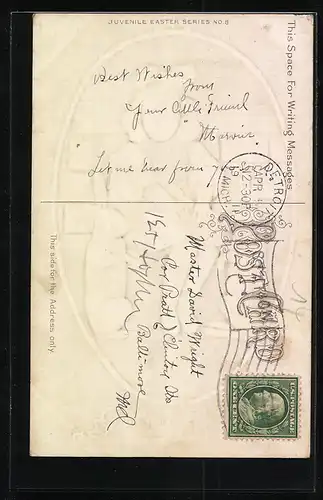 JUVENILE EASTER SERIES NO. 8
This Space For Writing Messages
Best Wishes
from
Your Little Friend
"Marvin"
"Let me hear from you
DETROIT
APR
30P
MICH
POST CARD
This side for the Address only.
Master David Wright
Cor Pratt & Clinton Sts
Baltimore
Md
14